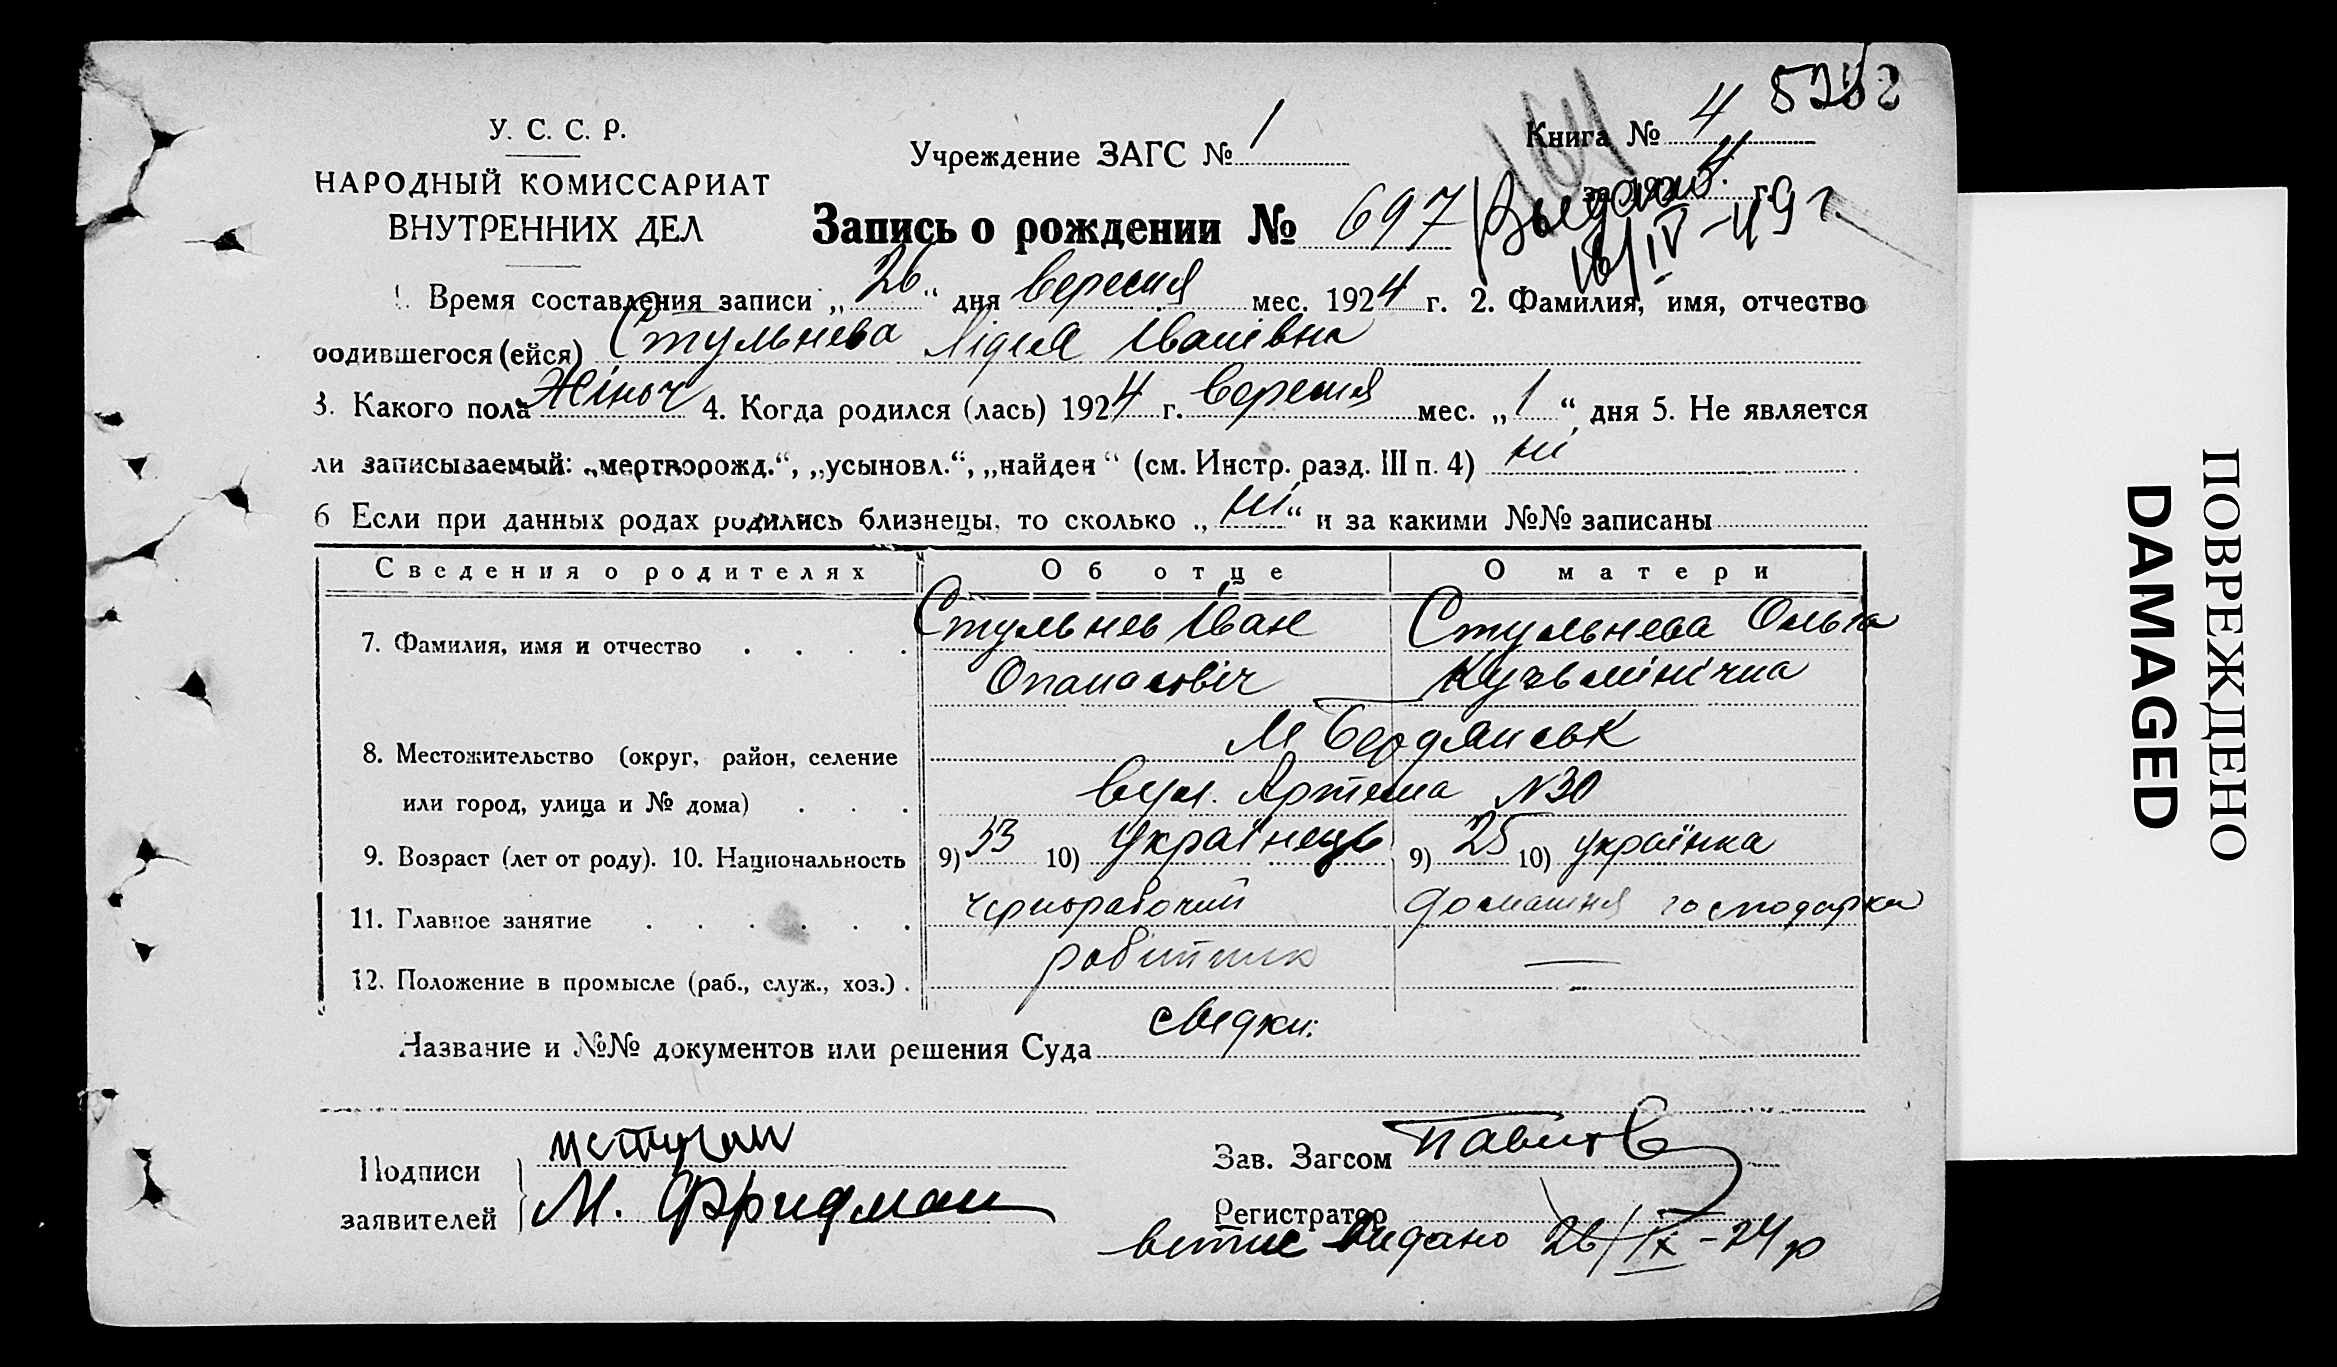 5252
У. С. С. Р.
НАРОДНЫЙ КОМИССАРИАТ
ВНУТРЕННИХ ДЕЛ
Учреждение ЗАГС № 1
Книга № 4
за 1924 г.
164
Выдано
16/IV-49 г.
Запись о рождении № 697
1. Время составления записи „26“ дня вересня мес. 1924 г. 2. Фамилия, имя, отчество
родившегося (ейся) Стульнева Лідія Іванівна
3. Какого пола Жіноч 4. Когда родился (лась) 1924 г. вересня мес. „1“ дня 5. Не является
ли записываемый: „мертворожд.“, „усыновл.“, „найден“ (см. Инстр. разд. III п. 4) ні
6 Если при данных родах родились близнецы, то сколько „ні“ и за какими №№ записаны
Сведения о родителях Об отце О матери
7. Фамилия, имя и отчество . . . . Стульнев Іван Стульнева Ольга
Опанасовіч Кузьмінічна
м Бердянськ
8. Местожительство (округ, район, селение
или город, улица и № дома) . . . вул. Артема №30
9. Возраст (лет от роду). 10. Национальность 9) 33 10) українець 9) 25 10) українка
11. Главное занятие . . . . . . чернорабочий домашня господарка
12. Положение в промысле (раб., служ., хоз.) . робитник —
Название и №№ документов или решения Суда свідки:
Подписи
заявителей
М. Фридман
Зав. Загсом
Регистратор
витис видано 26/IX-24 р
ПОВРЕЖДЕНО
DAMAGED